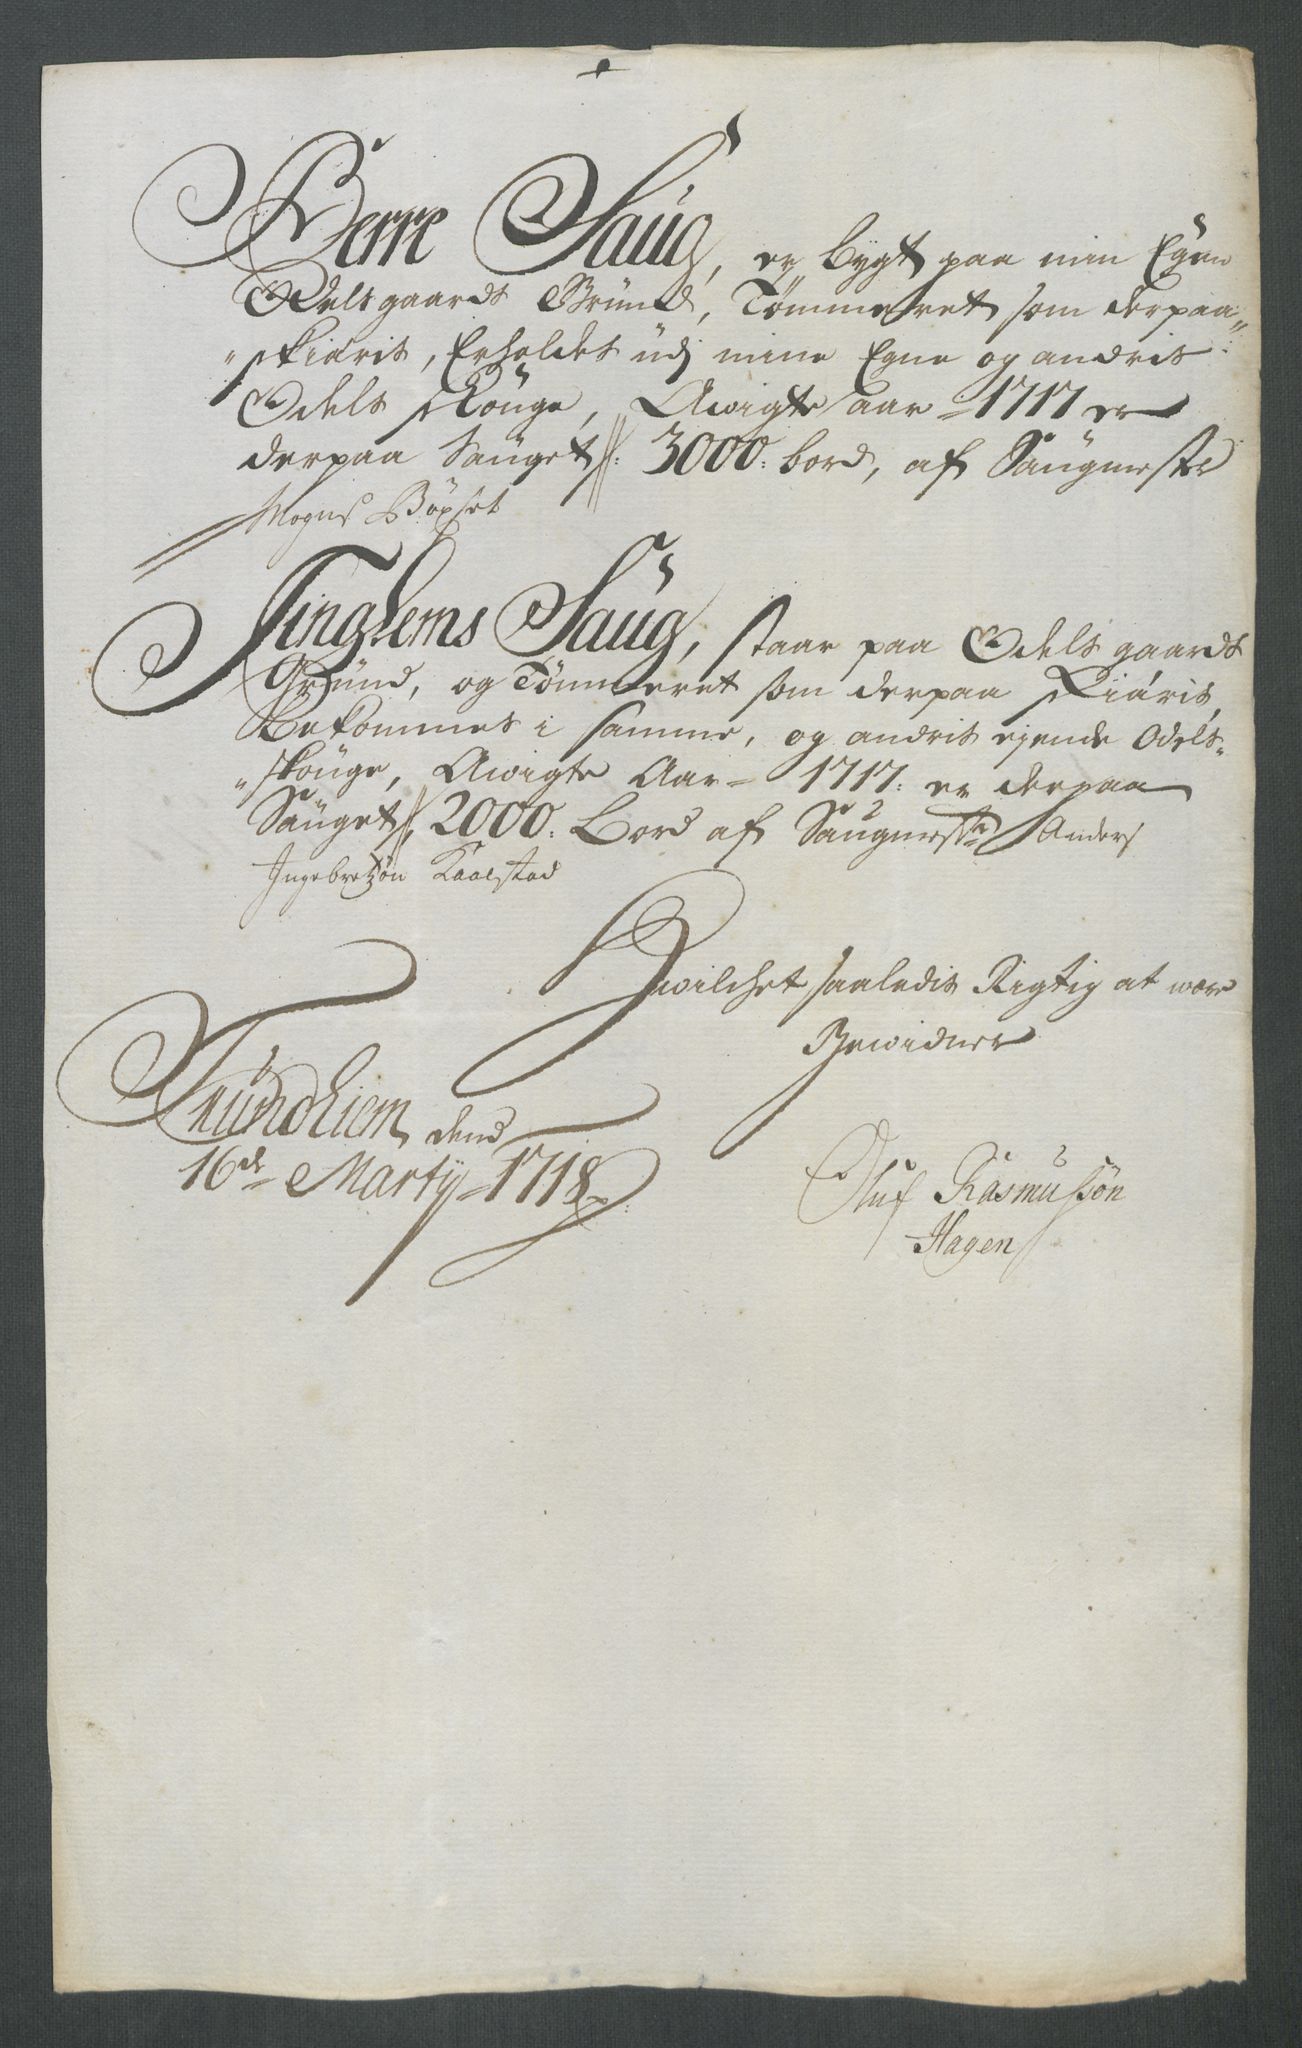 Berre Saug, er bygt paa min Egen
Odelsgaards Grund, Tømmeret som derpaa„
„skiæris, Erholdes udj mine Egne og andris
Odels skouge, Awigte aar 1717 er
derpaa Sauget //: 3000: bord, af Saugmester
Mogns
Tinglems Saug, staar paa Odels gaards
Grund, og Tømmeret som derpaa skiæris,
Bekommes i samme, og andris ejende Odels„
„skouge, Awigte Aar 1717: er derpaa
Sauget //: 2000: Bord af Saugmester Anders
Ingebretzøn Kaalstad
Hwilchet saaledis Rigtig at wære
Bewidner
Trundhiem dend
16de Martij 1718
Oluf Rasmussøn
Hagen